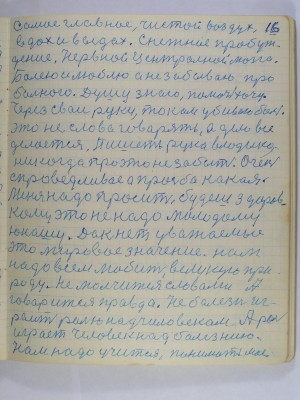 самое главное, чистой воздух, 16
вдох и выдох. Снежное пробуж-
дение, Нервной Центральной мозга.
Болею и люблю а не забываю про
больного. Душу знаю, помочь хочу
Через свои руки, током убиваю боль.
это не слова говорять, а дило все
делается, Пишеть рука владыка
никогда про это не забыть. Очен
справедливая просба какая.
Меня надо просить, будеш здоров.
Кому это не надо молодому
юнашу. Дак нет уважаемые
это мировое значение. нам
надо всем любить, великую при-
роду. Не молчится словами А
говарится правда. Не болезн иг-
раить роль над человекам А рол
играет человек над болезнию.
Нам надо учится, понимать